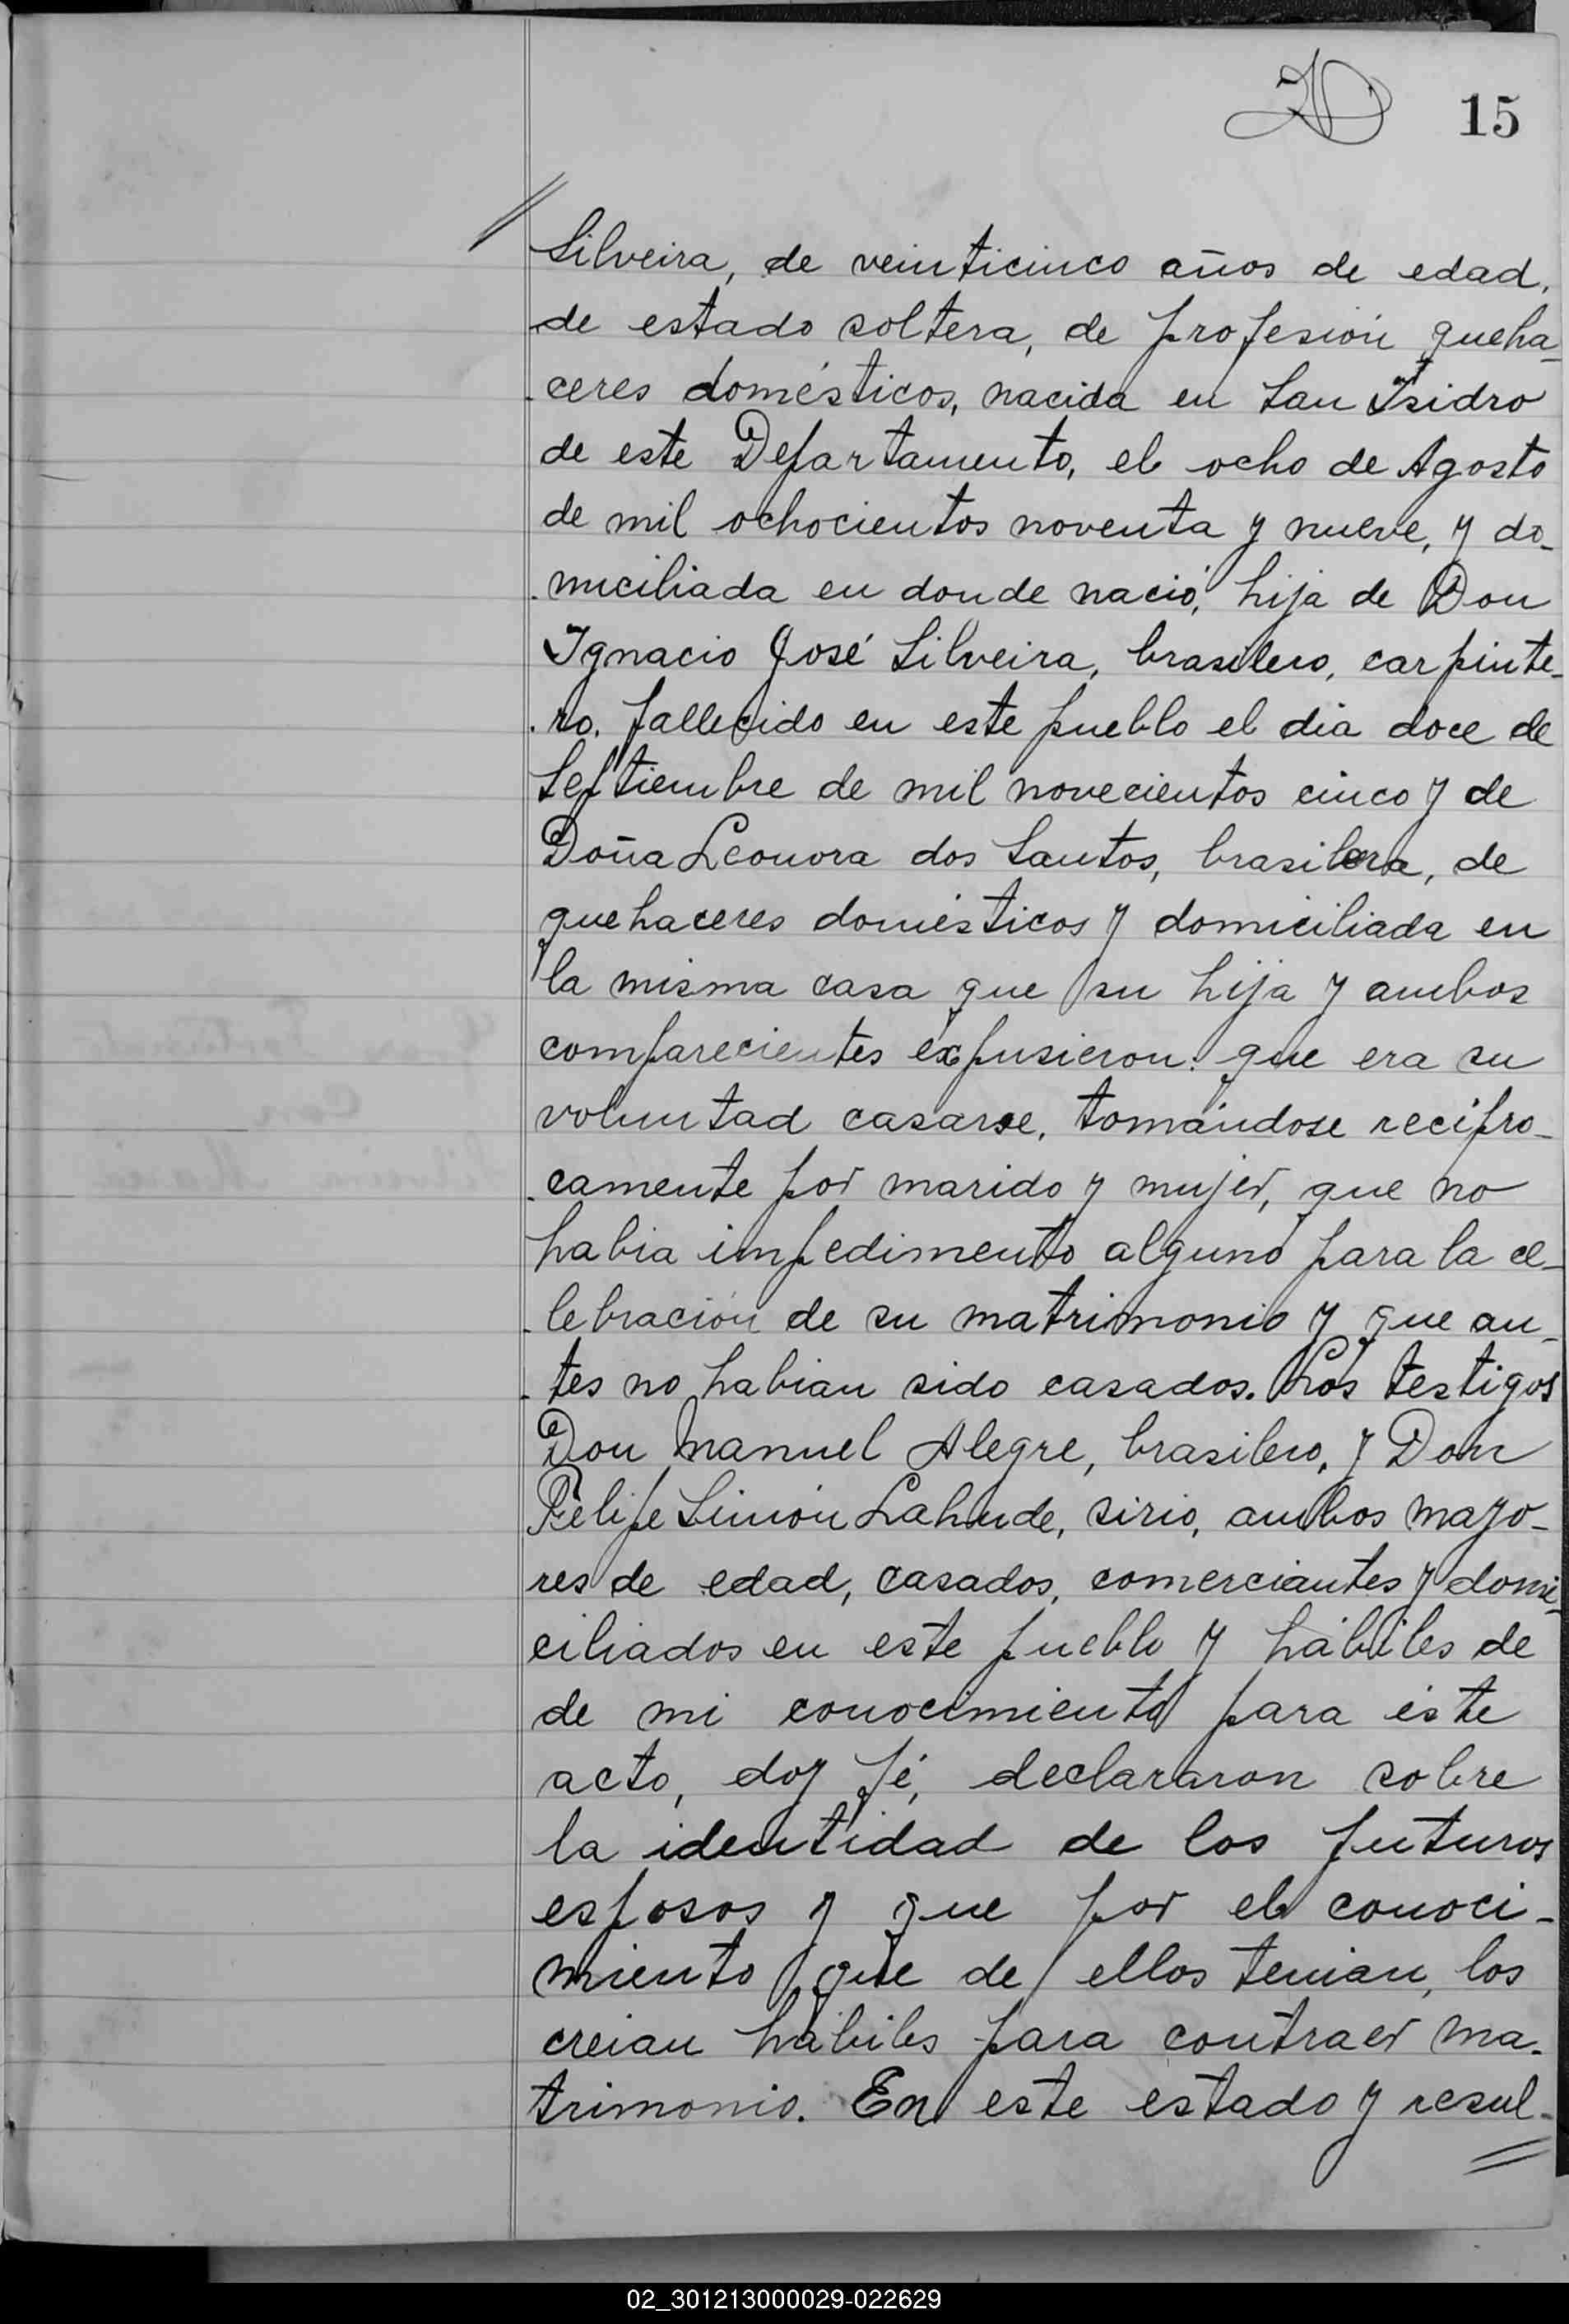 15
Silveira, de veinticinco años de edad,
de estado soltera, de profesión queha-
ceres domésticos, nacida en San Isidro
de este Departamento, el ocho de Agosto
de mil ochocientos noventa y nueve, y do-
miciliada en donde nació, hija de Don
Ignacio José Silveira, brasilero, carpinte-
ro, fallecido en este pueblo el dia doce de
Septiembre de mil novecientos cinco y de
Doña Leonora dos Santos, brasilera, de
quehaceres domésticos y domiciliada en
la misma casa que su hija y ambos
comparecientes expusieron: que era su
voluntad casarse, tomándose recipro-
camente por marido y mujer, que no
habia impedimento alguno para la ce-
lebración de su matrimonio y que an-
tes no habian sido casados. Los testigos
Don Manuel Alegre, brasilero, y Don
Felipe Simón Lahude, sirio, ambos mayo-
res de edad, casados, comerciantes y domi-
ciliados en este pueblo y hábiles de
de mi conocimiento para éste
acto, doy fé, declararon sobre
la identidad de los futuros
esposos y que por el conoci-
miento que de ellos tenian, los
creian hábiles para contraer ma-
trimonio. En este estado y resul-
02_301213000029-022629